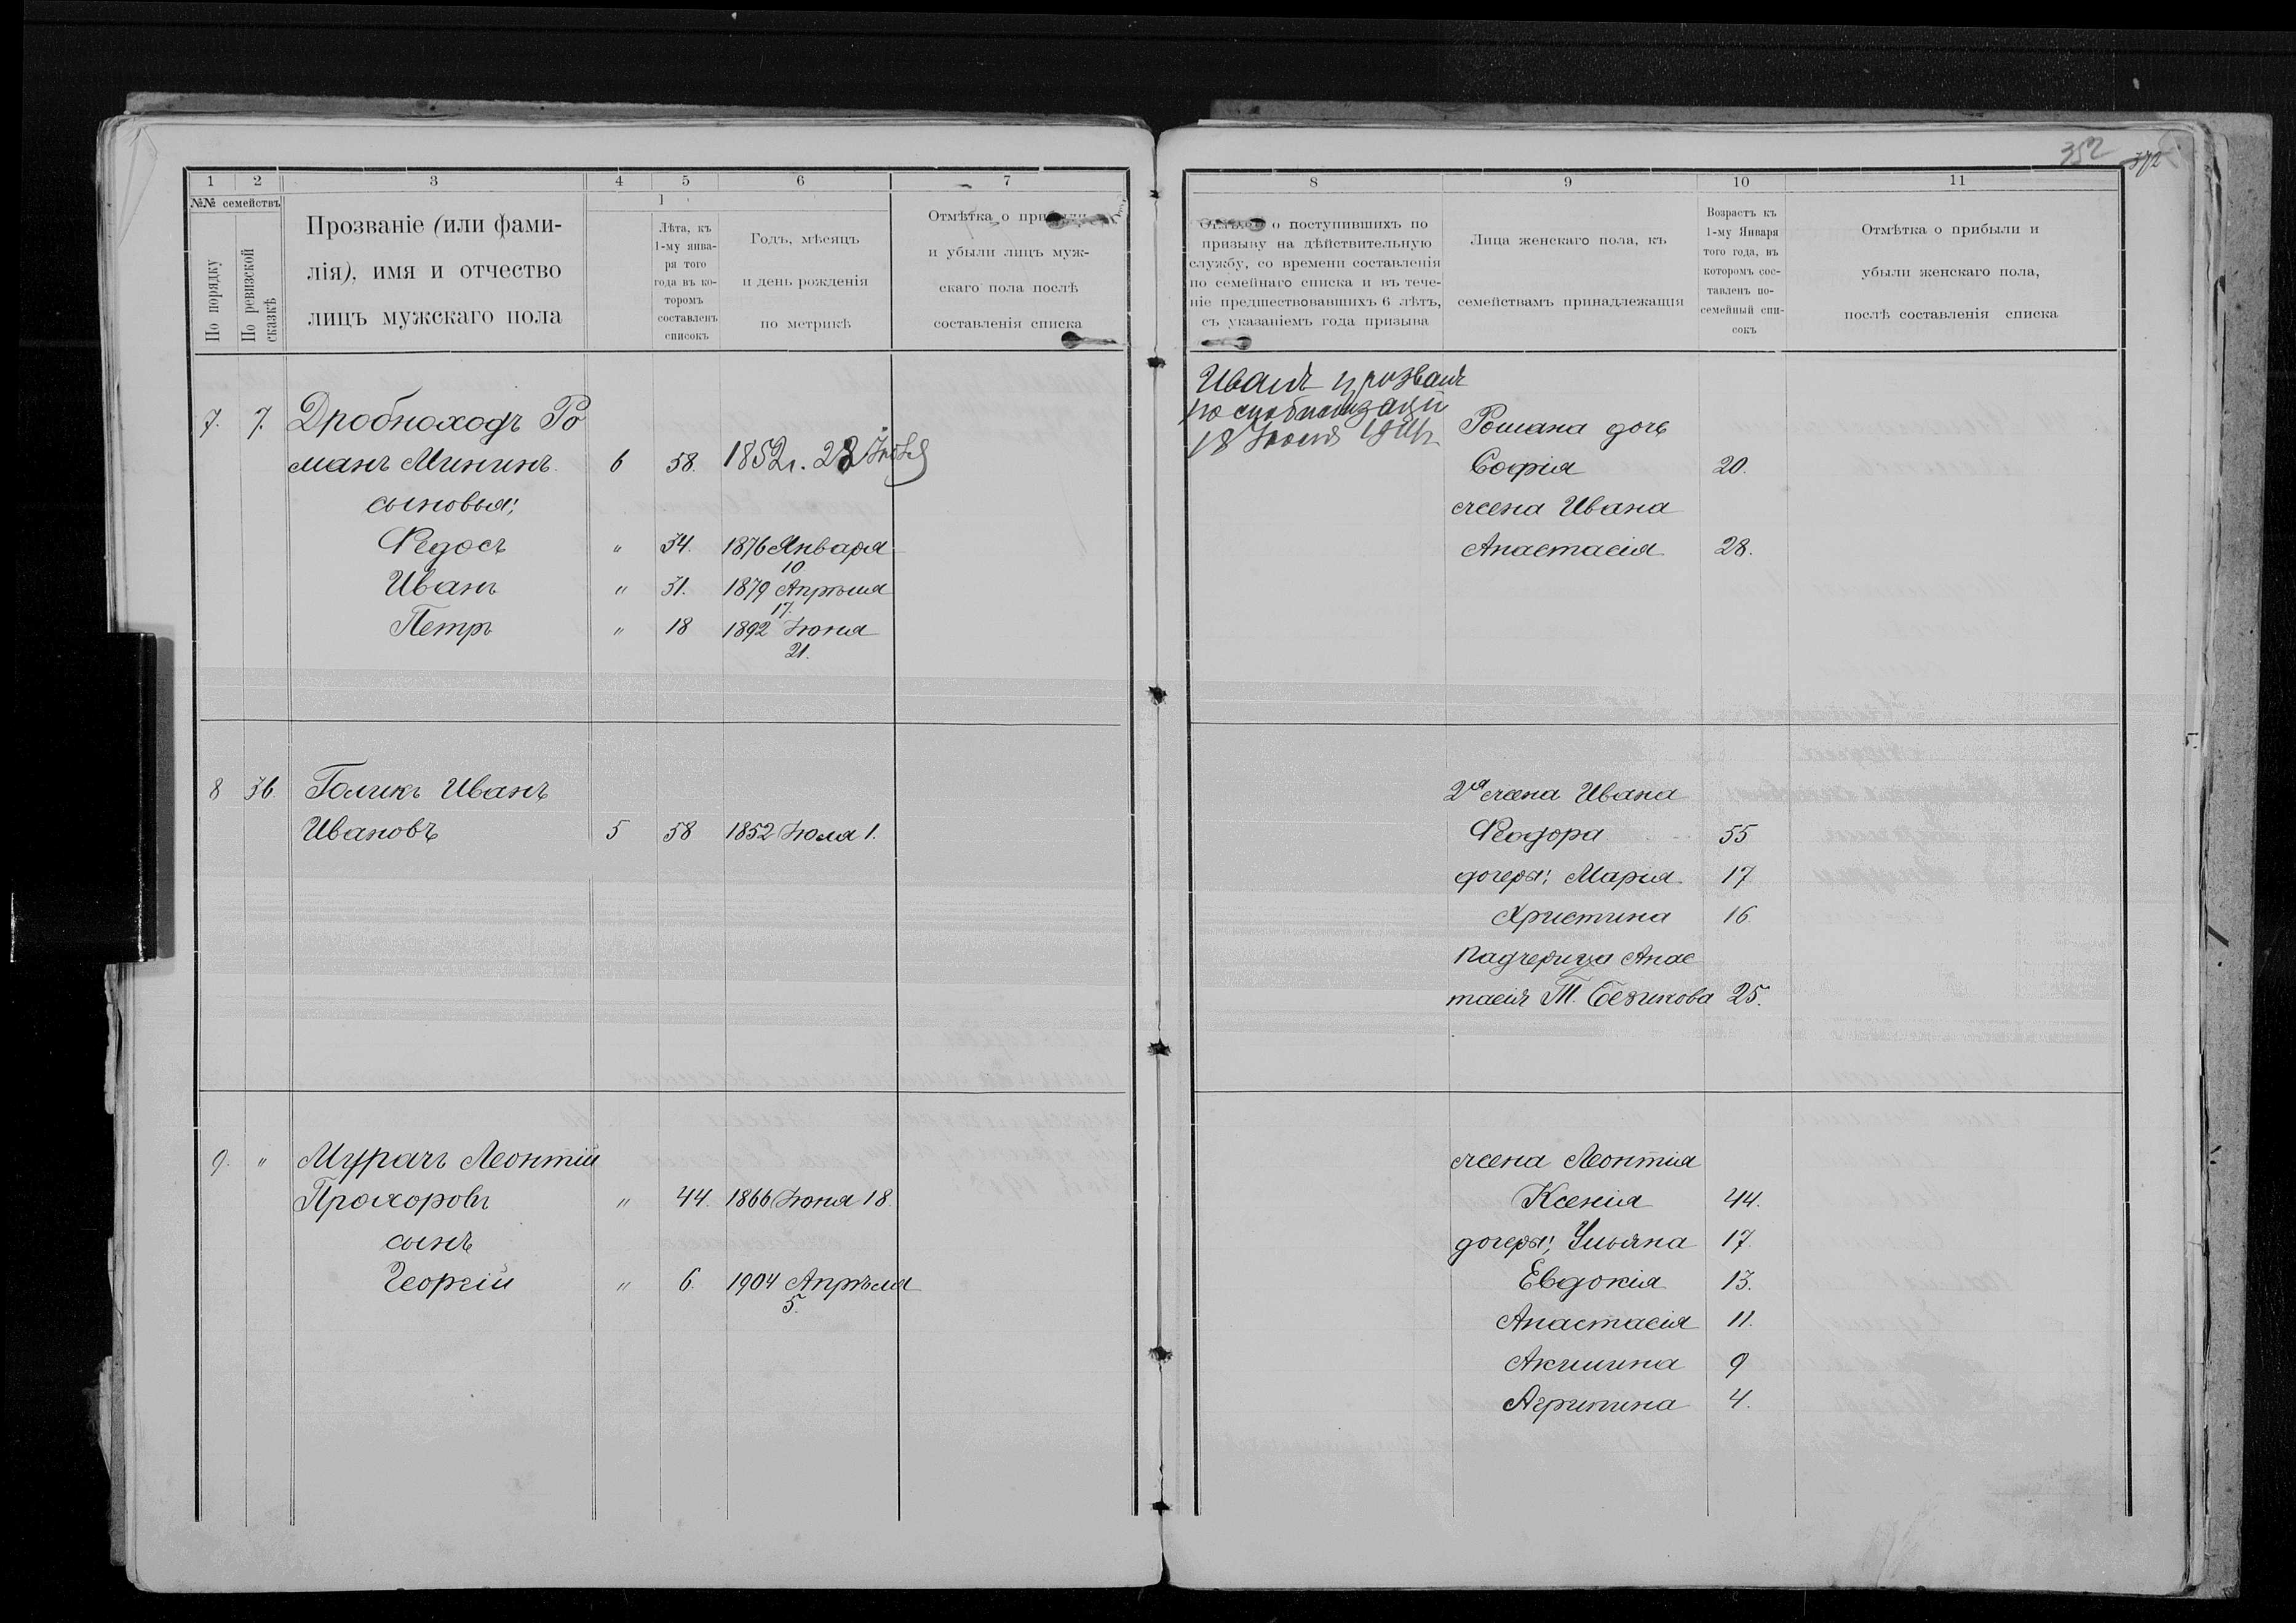 352 372
1 2 3 4 5 6 7
№№ семействъ
По порядку
По ревизской сказкѣ
Прозваніе (или фами-
лія), имя и отчество
лицъ мужскаго пола
1
Лѣта, къ
1-му янва-
ря того
года въ ко-
торомъ
составленъ
списокъ
Годъ, мѣсяцъ
и день рожденія
по метрикѣ
Отмѣтка о прибыли
и убыли лицъ муж-
скаго пола послѣ
составленія списка
7. 7. Дробноходъ Ро
манъ Мининъ 6 58. 1852 г. 28
сыновья;
Федосъ " 34. 1876 Января
10
Иванъ " 31. 1879 Апрѣля
17.
Петръ " 18 1892 Іюня
21.
8 36. Голикъ Иванъ
Ивановъ 5 58 1852 Іюля 1.
9. " Мурачъ Леонтій
Прохоровъ " 44. 1866 Іюня 18.
сынъ
Георгій " 6. 1904 Апрѣля
5.
8 9 10 11
Отмѣтка о поступившихъ по
призыву на дѣйствительную
службу, со времени составленія
по семейнаго списка и въ тече-
ніе предшествовавшихъ 6 лѣтъ,
съ указаніемъ года призыва
Лица женскаго пола, къ
семействамъ принадлежащія
Возрастъ къ
1-му Января
того года, въ
которомъ сос-
тавленъ по-
семейный спи-
сокъ
Отмѣтка о прибыли и
убыли женскаго пола,
послѣ составленія списка
Иванъ призванъ
по мобилизаціи
18 Іюля 1914 г.
Романа дочь
Софія 20.
жена Ивана
Анастасія 28.
2я жена Ивана
Феодора 55
дочери; Марія 17
Христина 16
падчерица Анас
тасія Т. Безикова 25.
жена Леонтія
Ксенія 44.
дочери; Ульяна 17.
Евдокія 13.
Анастасія 11.
Акилина 9
Агрипина 4.